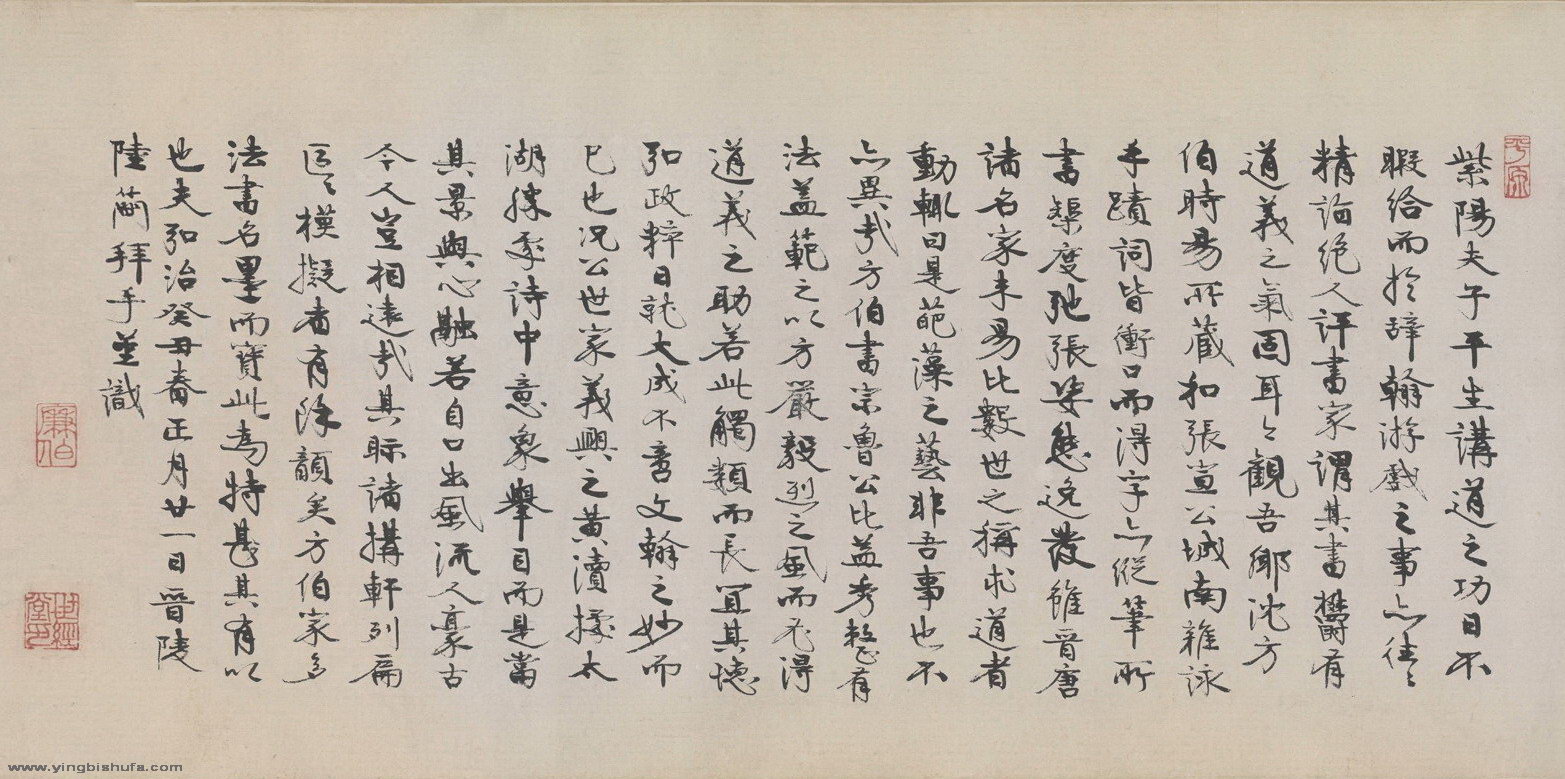 紫陽夫子平生講道之功日不
暇給而於辞翰游戲之事亦往〻
精詣绝人評書家謂其書欝有
道義之氣固耳今觀吾鄉沈方
伯時暘所藏和張宣公城南雜詠
手蹟詞皆衝口而得字亦縱筆所
書榘度弛張姿態逸發雖晋唐
諸名家未易比數世之稱求道者
動輒曰是葩藻之藝非吾事也不
亦異哉方伯書宗魯公比益考整有
法蓋範之以方嚴毅烈之風而尤得
道義之助若此觸類而長宜其德
弘政粹日就大成不啻文翰之妙而
已也况公世家義興之黄瀆據太
湖勝處詩中意象舉目而是當
其景與心融若自口出風流人豪古
今人豈相遠哉其眎諸搆軒列扁
區〻模擬者有除顫矣方伯家多
法書名墨而寶此為特甚其有以
也夫弘治癸丑春正月廿一日晉陵
陸簡拜手堇識
平原
廉伯
世經堂印
www.yingbishufa.com